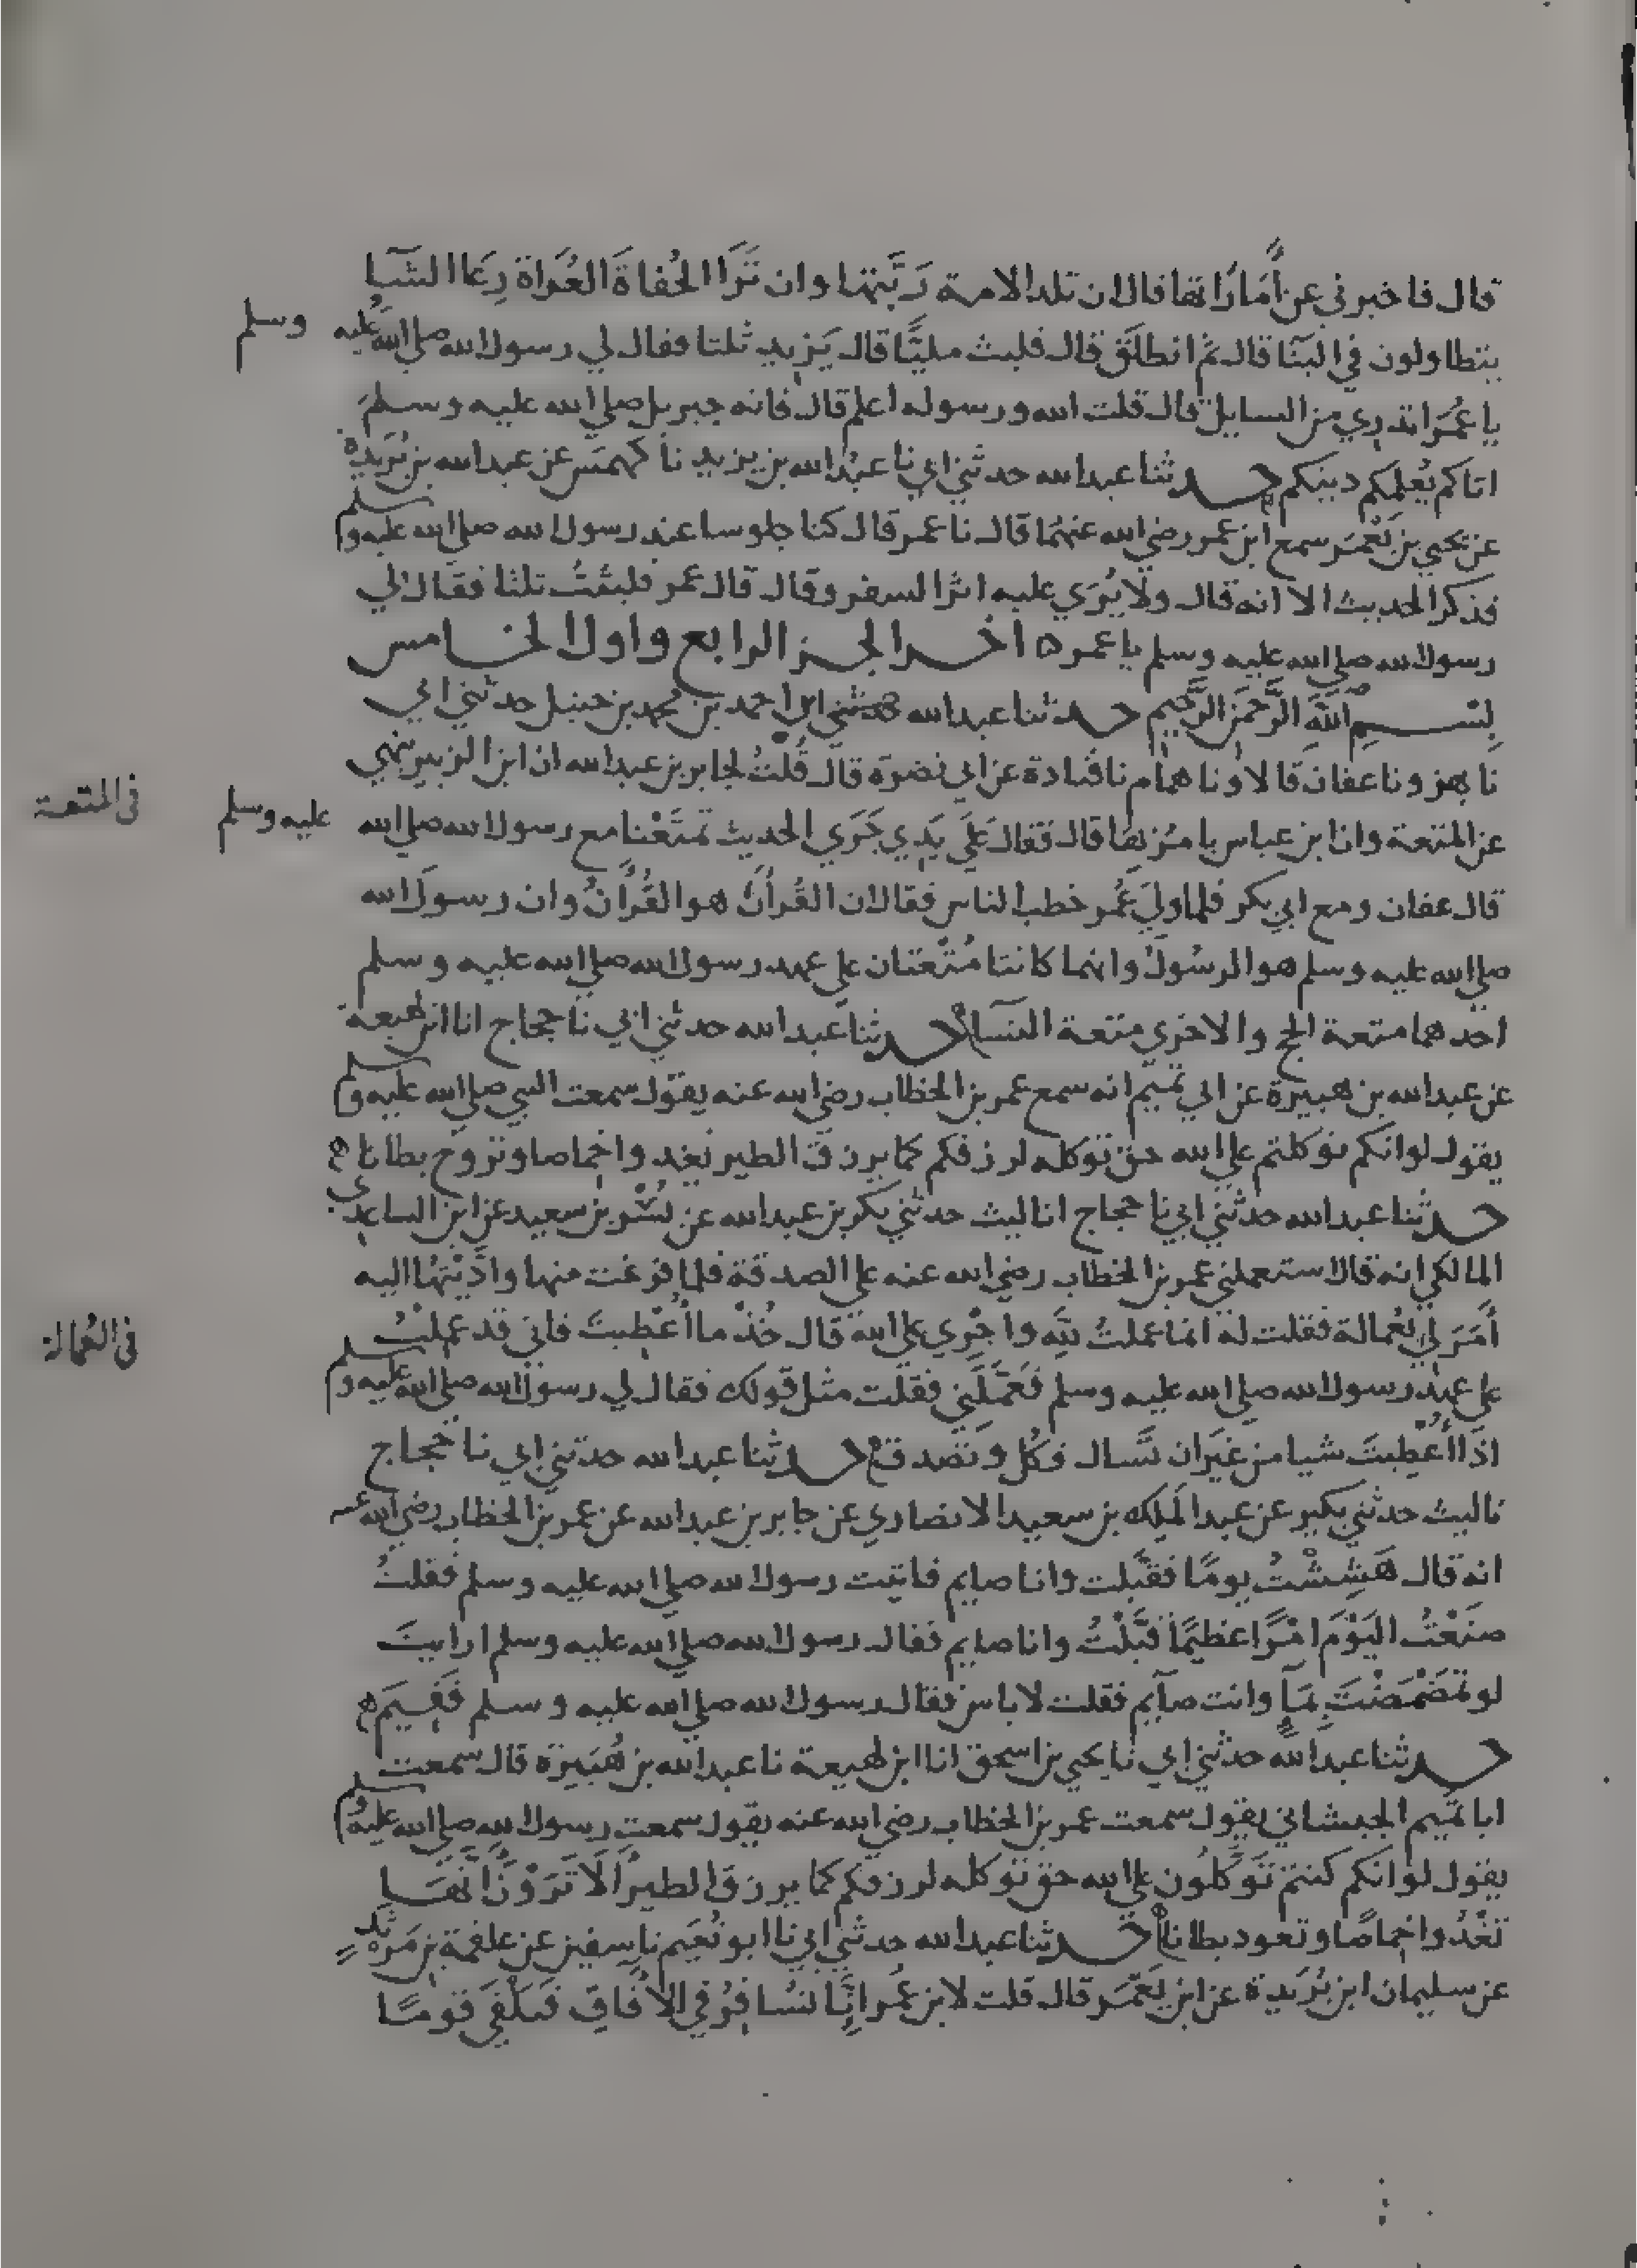 قال فاخبرني عن أماراتها قال ان تلد الامة رَبَّتها وان تَرَا الحُفاةَ العُرَاة رِعَا الشا
يتطاولون في البنا قال ثم انطلَق قال فلبث مليًّا قال يَزيد ثلثا فقال لي رسول الله صلى الله عليه وسلم
يا عُمَر اتدري من السايل قال قلت الله ورسوله اعلم قال فانه جبريل صلى الله عليه وسلم
اتاكم يُعلمكم دينكم حدثنا عبدالله حدثني ابي نا عبدالله بن يزيد نا كهمس عن عبدالله بن بُرَيدة
عن يحيي بن يَعْمَر سمع ابن عمر رضي الله عنهما قال نا عمر قال كنا جلوسا عند رسول الله صلى الله عليه وسلم
فذكر الحديث الا انه قال ولا يُرَي عليه اثر السفر وقال قال عمر فلبثتُ ثلثا فقال لي
رسول الله صلى الله عليه وسلم يا عمر ه اخر الجز الرابع واول الخامس
بسم الله الرَّحمَن الرَّحيم حدثنا عبدالله حدثني ابي احمد بن محمد بن حنبل حدثني ابي
نا بهز ونا عفان قالا ونا همام نا قتادة عن ابي نضرة قال قُلْتُ لجابر بن عبدالله ان ابن الزبير ينهي
عن المتعة وان ابن عباس يامُرُ بها قال فقال عَلَي يَدِي جَرَي الحديث تمتَّعْنا مع رسول الله صلى الله عليه وسلم
في المتعة
قال عفان ومع ابي بكر فلما ولِيَ عُمر خطب الناس فقال ان القُرآن هو القُرآنُ وان رسولَ الله
صلى الله عليه وسلم هو الرسُولُ وانهما كانتا مُتْعتان على عهد رسول الله صلى الله عليه وسلم
احدهما متعة الحج والاخري متعة النسا حدثنا عبدالله حدثني ابي نا حجاج انا ابن لهيعة
عن عبدالله بن هبيرة عن ابي تميم انه سمع عمر بن الخطاب رضي الله عنه يقول سمعت النبي صلى الله عليه وسلم
يقول لو انكم توكلتم على الله حق توكله لرزقكم كما يرزق الطير تغدوا خماصا وتروح بطانا ه
حدثنا عبدالله حدثني ابي نا حجاج انا ليث حدثني بكر بن عبدالله عن بُسْر بن سعيد عن ابن الساعدي
المالكي انه قال استعملني عمر بن الخطاب رضي الله عنه على الصدقة فلما فرغت منها وادَّيْتُها اليه
أَمَرَ لي بعُمالة فقلت له انما عملتُ لله واجْري على الله قال خُذْ ما أُعْطِيتَ فاني قد عملتُ
في العُمالة
على عهد رسول الله صلى الله عليه وسلم فَعَمَّلَني فقلت مثل قولك فقال لي رسول الله صلى الله عليه وسلم
اذا أُعْطِيتَ شيا من غَيرَ ان تَسال فكُل وتَصدق حدثنا عبدالله حدثني ابي نا حجاج
نا ليث حدثني بكير عن عبد الملِك بن سعيد الانصاري عن جابر بن عبدالله عن عمر بن الخطاب رضي الله عنه
انه قال هَشِشْتُ يومًا فقبَّلت وانا صايم فاتيت رسول الله صلى الله عليه وسلم فقلتُ
صَنَعْتُ اليَوْمَ امْرًا عظيمًا قبَّلْتُ وانا صايم فقال رسول الله صلى الله عليه وسلم ارايتَ
لو تمَضْمَضْتَ بِمَآءٍ وانت صآيم فقلت لا باس فقال رسول الله صلى الله عليه وسلم فَفِيمَ ه
حدثنا عبدالله حدثني ابي نا يحيي بن اسحق انا ابن لهيعة نا عبدالله بن هُبَيرَة قال سمعت
ابا تميم الجيشاني يقول سمعت عمر بن الخطاب رضي الله عنه يقول سمعت رسول الله صلى الله عليه وسلم
يقول لو انكم كنتم تَوكَّلُون على الله حق توكله لرزقكم كما يرزق الطير الَا تَرَوْنَ أنَّهَا
تَغْدُوا خماصًا وتعود بطانا حدثنا عبدالله حدثني ابي نا ابو نُعَيم نا سفين عن علقمة بن مَرْثد
عن سليمان ابن بُرَيدة عن ابن يَعْمَر قال قلت لابن عُمَر انا نسُافِرُ في الآفَاق فنَلْقَي قومًا